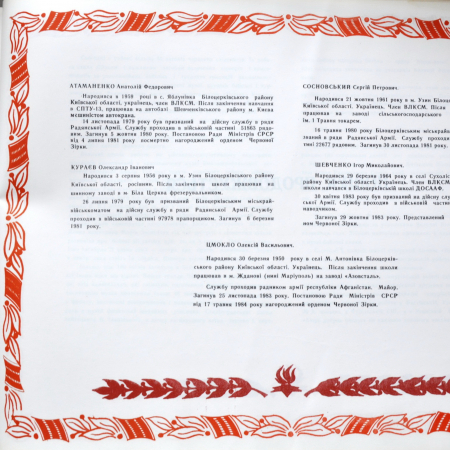 АТАМАНЕНКО Анатолій Федорович
Народився в 1959 році в с. Вілунівка Білоцерківського району
Київської області, українець, член ВЛКСМ. Після закінчення навчання
в СПТУ-13, працював на автобазі Шевченківського району м. Києва
машиністом автокрана.
14 листопада 1979 року був призваний на дійсну службу в ряди
Радянської Армії. Службу проходив в військовій частині 51863 рядо-
вим. Загинув 5 жовтня 1980 року. Постановою Ради Міністрів СРСР
від 4 липня 1981 року посмертно нагороджений орденом Червоної
Зірки.
КУРАЄВ Олександр Іванович
Народився 3 серпня 1958 року в м. Узин Білоцерківського району
Київської області, росіянин. Після закінчення школи працював на
шинному заводі в м Біла Церква фрезерувальником.
26 липня 1979 року був призваний Білоцерківським міськрай-
військкоматом на дійсну службу в ряди Радянської Армії. Службу
проходив в військовій частині 97978 прапорщиком. Загинув 6 березня
1981 року.
СОСНОВСЬКИЙ Сергій Петрович.
Народився 21 жовтня 1961 року в м. Узин Білоц
Київської області. Українець. Член ВЛКСМ. Після
працював на заводі сільськогосподарського
ім. 1 Травня токарем.
16 травня 1980 року Білоцерківським міськрайв
званий в ряди Радянської Армії. Службу проходи
тині 22677 рядовим. Загинув 30 листопада 1981 року.
ШЕВЧЕНКО Ігор Миколайович.
Народився 29 березня 1964 року в селі Сухоліс
району Київської області, Українець. Член ВЛКСМ
школи навчався в Білоцерківській школі ДОСААФ.
30 квітня 1983 року був призваний на дійсну сл
ської Армії. Службу проходив в військовій частині
наводчиком.
Загинув 29 жовтня 1983 року. Представлений
ном Червоної Зірки.
ЦМОКЛО Олексій Васильович.
Народився 30 березня 1950 року в селі М. Антонівка Білоцерків-
ського району Київської області. Українець. Після закінчення школи
працював в м. Жданові (нині Маріуполь) на заводі «Азовсталь».
Службу проходив радником армії республіки Афганістан. Майор.
Загинув 25 листопада 1983 року. Постановою Ради Міністрів СРСР
від 17 травня 1984 року нагороджений орденом Червоної Зірки.